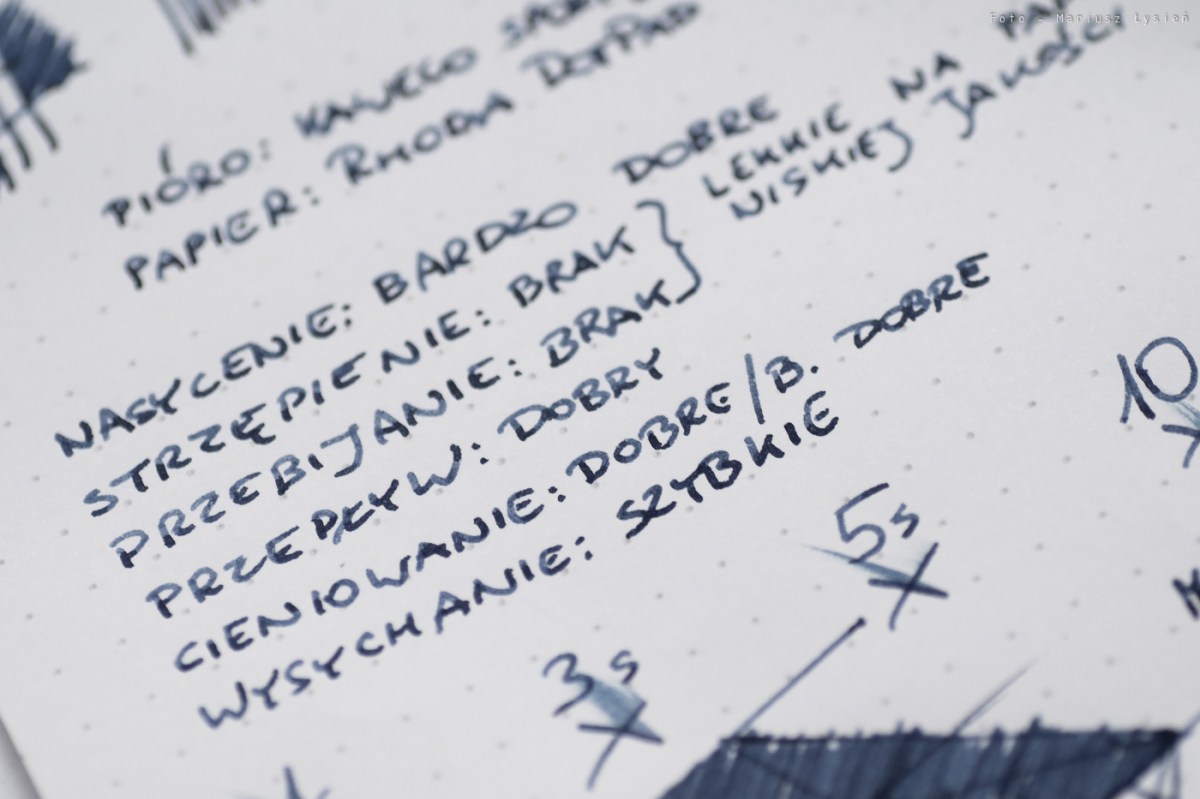 Foto - Mariusz Łysień
PIÓRO: KAWECO
PAPIER: RHODIA DOTPAD
NASYCENIE: BARDZO DOBRE
STRZĘPIENIE: BRAK } LEKKIE NA
PRZEBIJANIE: BRAK NISKIEJ JAKOŚCI
PRZEPŁYW: DOBRY
CIENIOWANIE: DOBRE/B. DOBRE
WYSYCHANIE: SZYBKIE
3s
5s
10